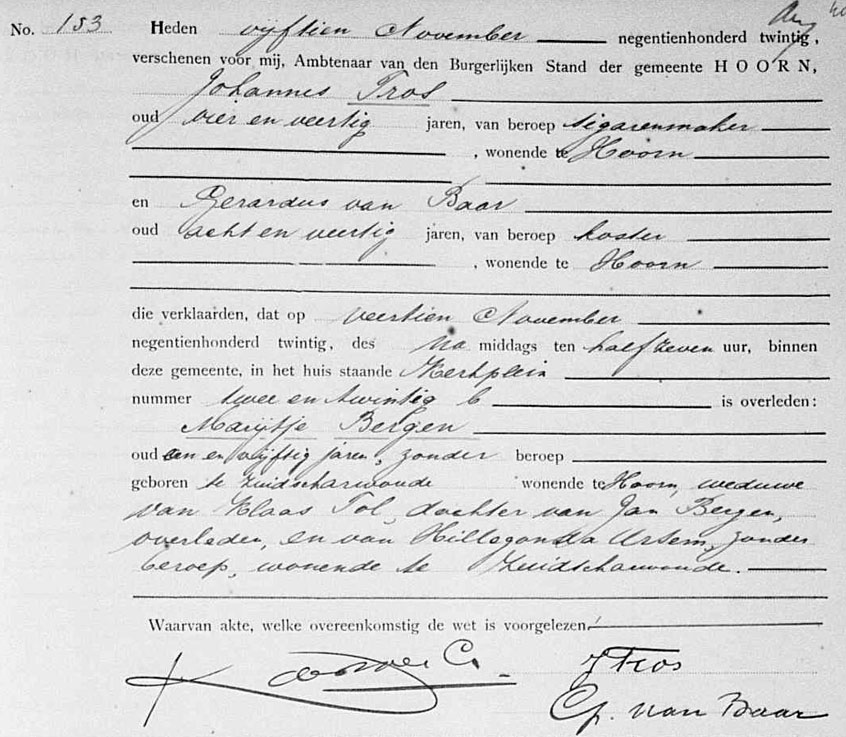 No. 153 Heden vijftien November negentienhonderd twintig,
verschenen voor mij, Ambtenaar van den Burgerlijken Stand der gemeente HOORN,
Johannes Tros
oud vier en veertig jaren, van beroep sigarenmaker
, wonende te Hoorn
en Gerardus van Baar
oud acht en veertig jaren, van beroep koster
, wonende te Hoorn
die verklaarden, dat op veertien November
negentienhonderd twintig, des na middags ten half zeven uur, binnen
deze gemeente, in het huis staande Kerkplein
nummer twee en twintig b is overleden:
Marijtje Bergen
oud een en vijftig jaren, zonder beroep
geboren te Zuidscharwoude wonende te Hoorn, weduwe
van Klaas Tol, dochter van Jan Bergen,
overleden, en van Hillegonda Ursem, zonder
beroep, wonende te Zuidscharwoude.
Waarvan akte, welke overeenkomstig de wet is voorgelezen.
J Tros
G. van Baar